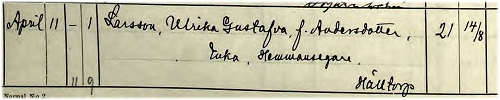 April 11 - 1 Larsson, Ulrika Gustafva, f. Andersdotter, 21 14/8
Enka, Hemmansegare.
11 9 Hälltorp
Normal No 2